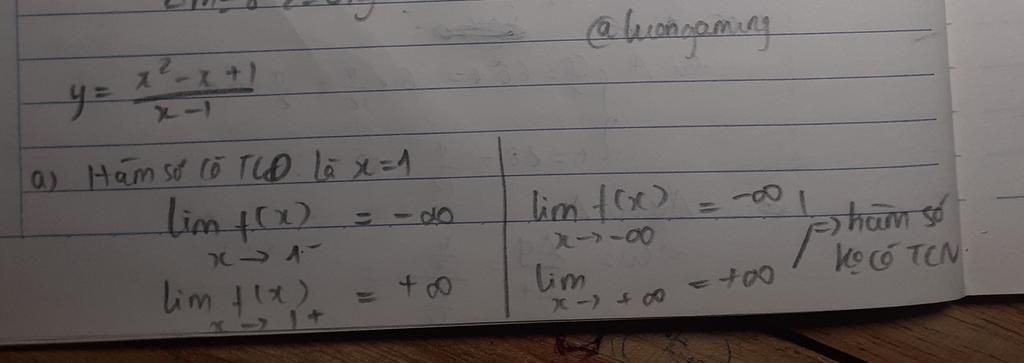 @luongaming
y = x² - x + 1 / x - 1
a) Hàm số có TCĐ là x = 1
lim f(x) = -∞
x → 1⁻
lim f(x) = +∞
x → 1⁺
lim f(x) = -∞
x → -∞
lim = +∞
x → +∞
=> hàm số
ko có TCN.